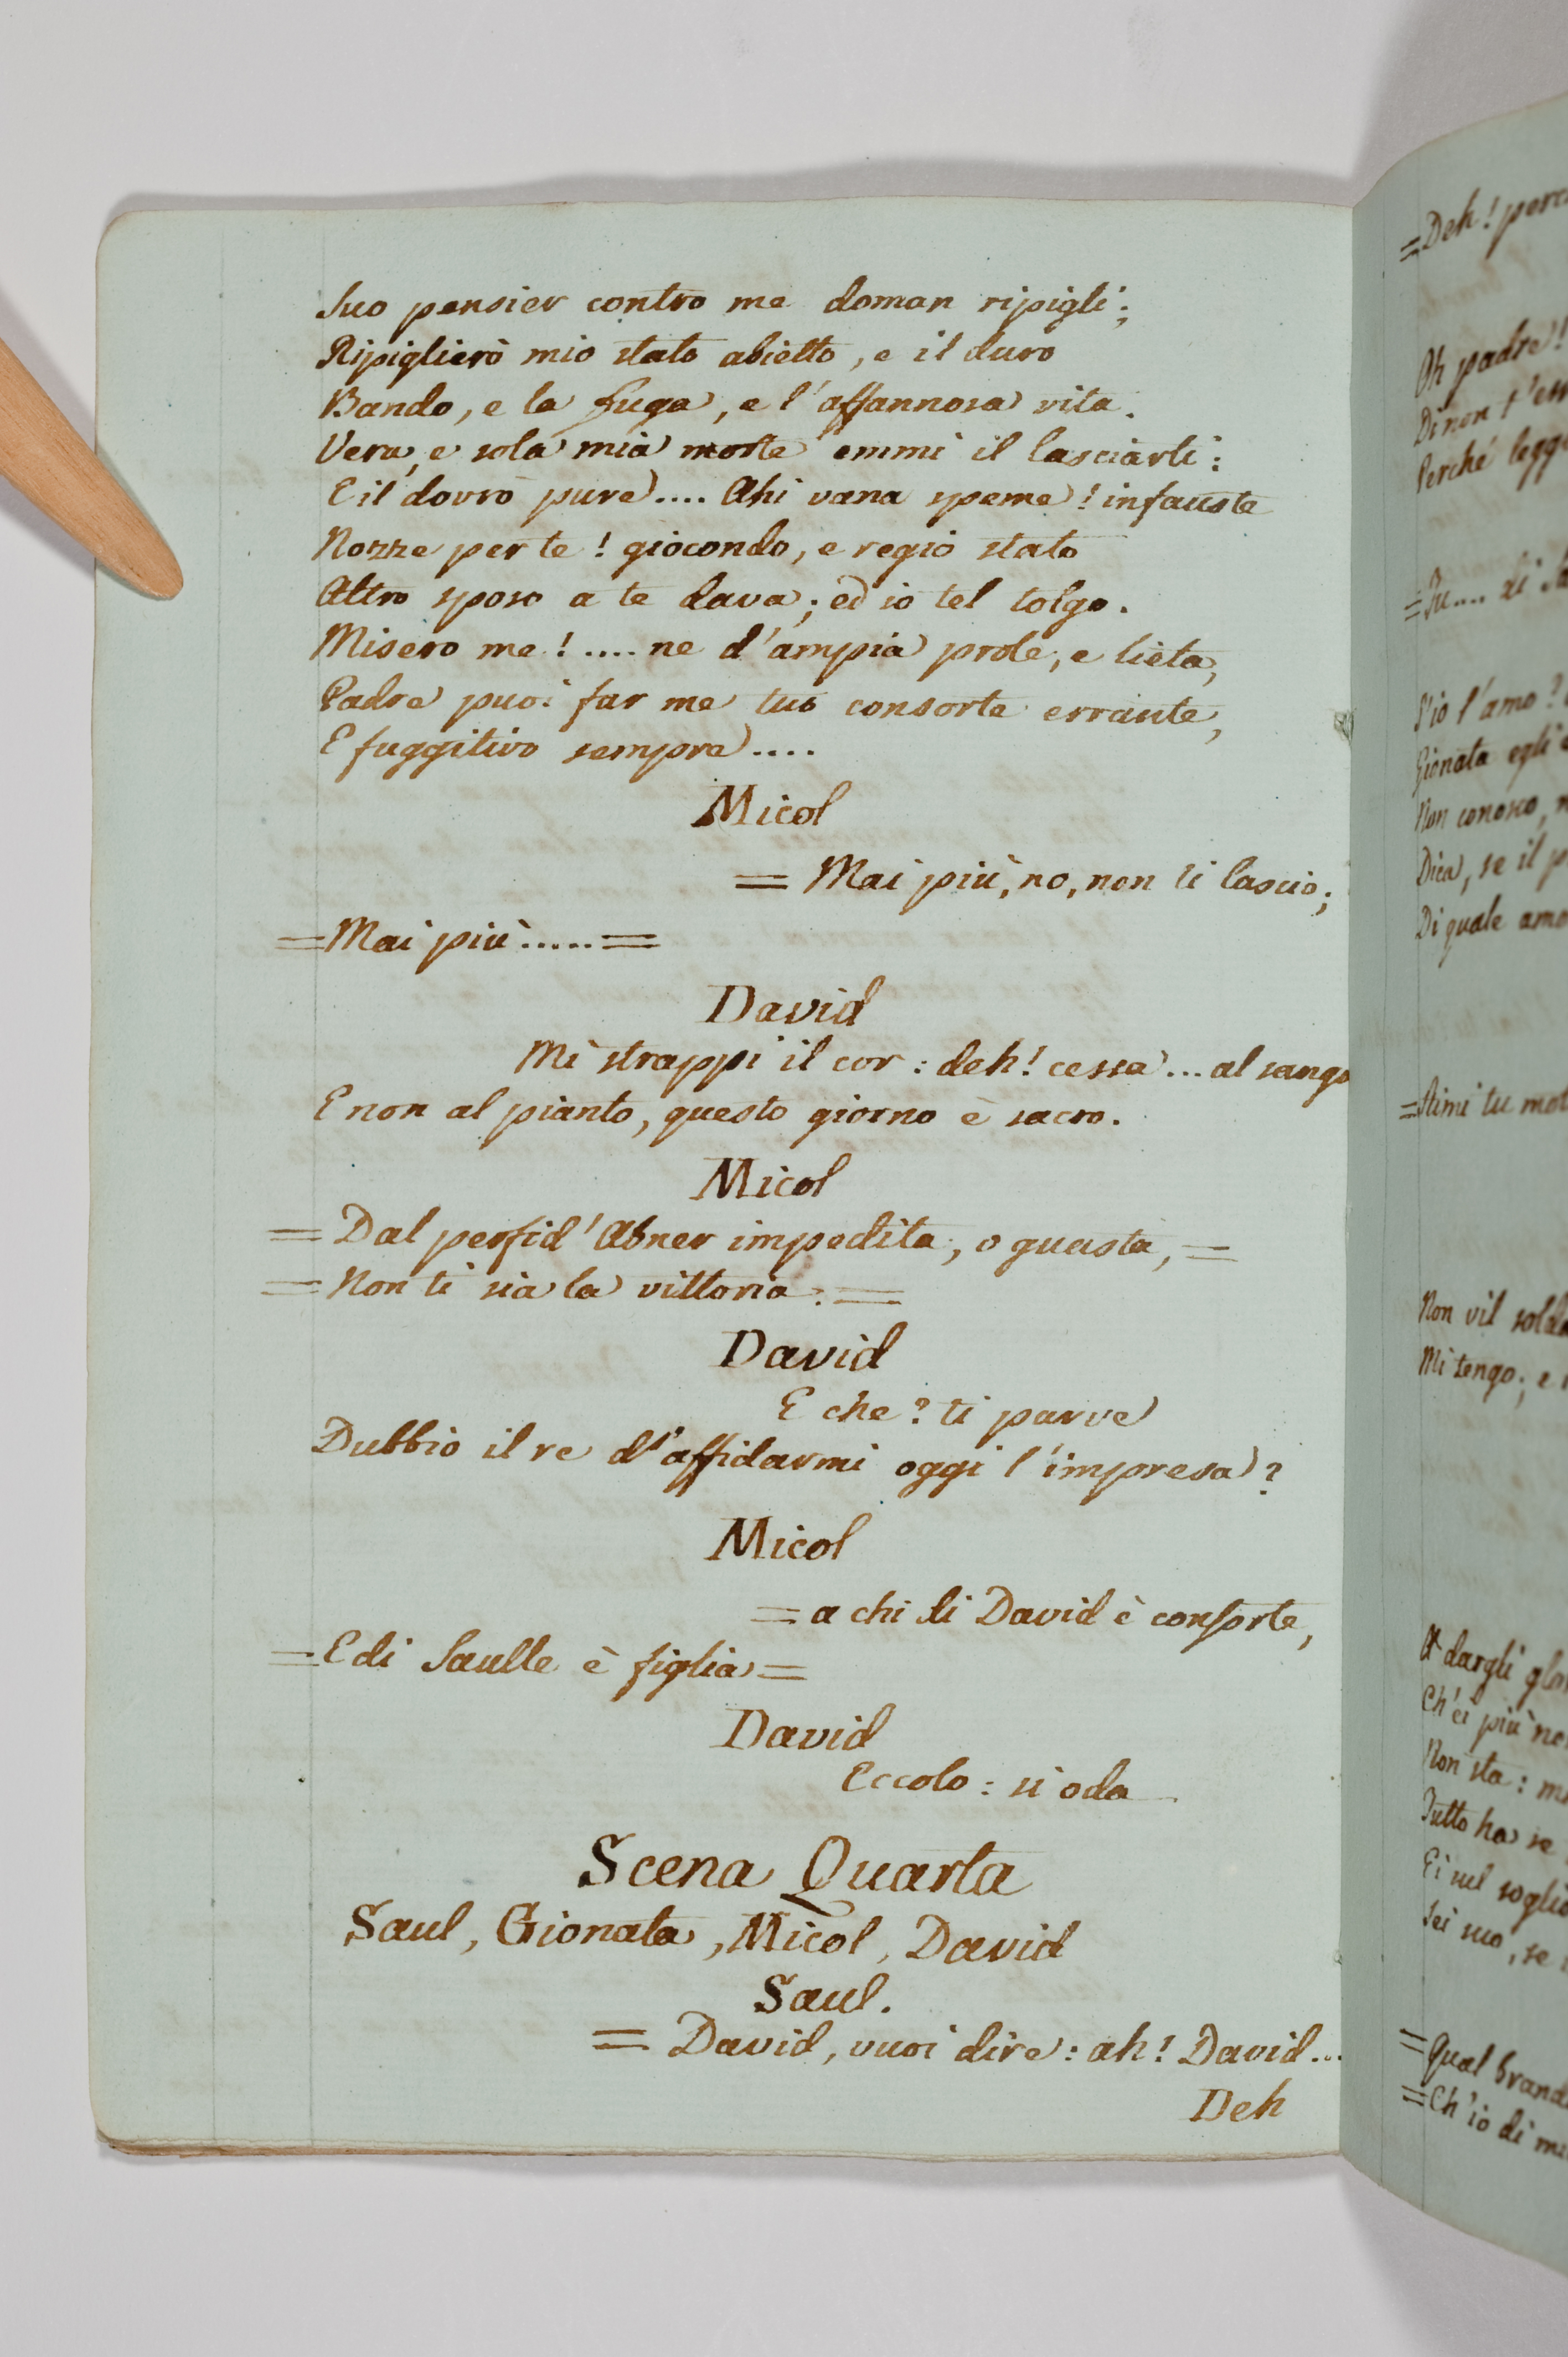 Suo pensier contro me doman ripigli;
Ripiglierò mio stato abietto, e il duro
Bando, e la fuga, e l'affannosa vita.
Vera, e sola mia morte emmi il lasciarti:
E il dovrò pure.... Ahi vana speme! infauste
Nozze per te! giocondo, e regio stato
Altro sposo a te dava; ed io tel tolgo.
Misero me!.... ne d'ampia prole, e lieta,
Padre puoi far me tuo consorte errante,
E fuggitivo sempre....
Micol
= Mai più, no, non ti lascio;
= Mai più..... =
David
Mi strappi il cor: deh! cessa... al sangue
E non al pianto, questo giorno è sacro.
Micol
= Dal perfid'Abner impedita, o guasta, =
= Non ti sia la vittoria. =
David
E che? ti parve
Dubbio il re d'affidarmi oggi l'impresa?
Micol
= a chi di David è consorte,
= E di Saulle è figlia =
David
Eccolo: si oda
Scena Quarta
Saul, Gionata, Micol, David
Saul.
= David, vuoi dire: ah! David...
Deh
= Deh!
Oh padre!
Di non t'
Perché
= Tu.... di
S'io l'amo?
Gionata egli
Non conosco,
Dica, se il
Di quale
= Aimi tu
Non vil
Mi tengo; e
A dargli
Ch'ei più
Non sta:
Tutto ha se
Ei sul
Sei suo, se
= Qual
= Ch'io di